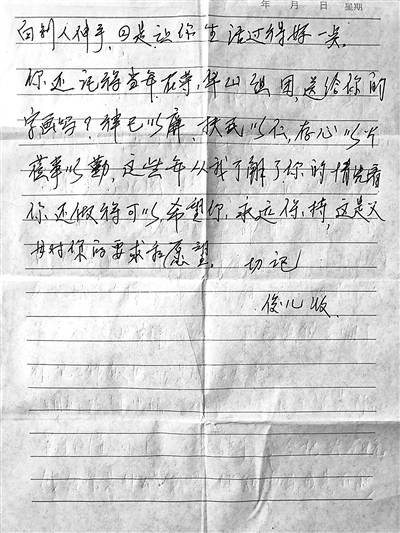 年 月 日 星期
向别人伸手,只是让你生活过得好一点。
你还记得当年在李,华山组团,送给你的
字画吗?律己以廉,抚民以仁,存心以公
莅事以勤,这些年从我了解了你的情况看
你还做得可以,希望你,永远保持,这是父
母对你的要求和愿望。 切记
俊儿收